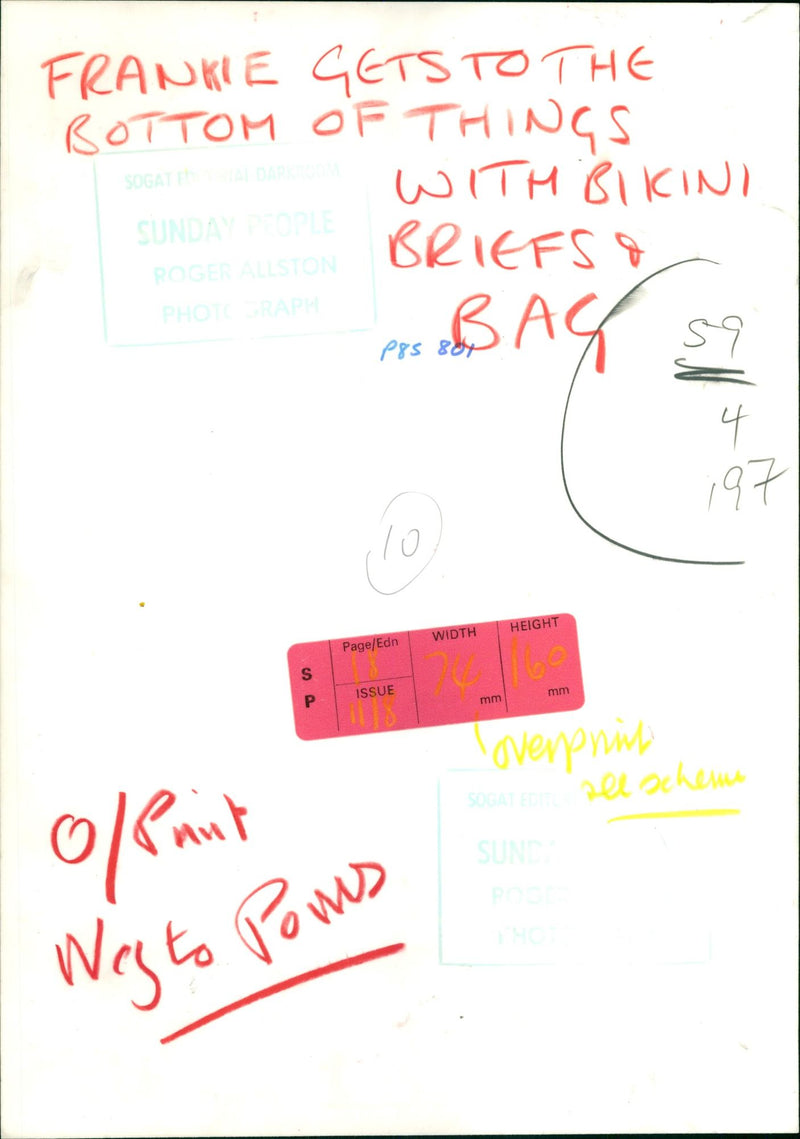 FRANKIE GETS TO THE
BOTTOM OF THINGS
WITH BIKINI
BRIEFS &
BAG
SOGAT EDITORIAL DARKROOM
SUNDAY PEOPLE
ROGER ALLSTON
PHOTOGRAPH
P85 801
59
4
197
10
S P
Page/Edn 18
ISSUE 11/8
WIDTH 74 mm
HEIGHT 160 mm
overprint
see scheme
O/Print
Neg to
SOGAT EDIT
SUND
ROGE
PHOT